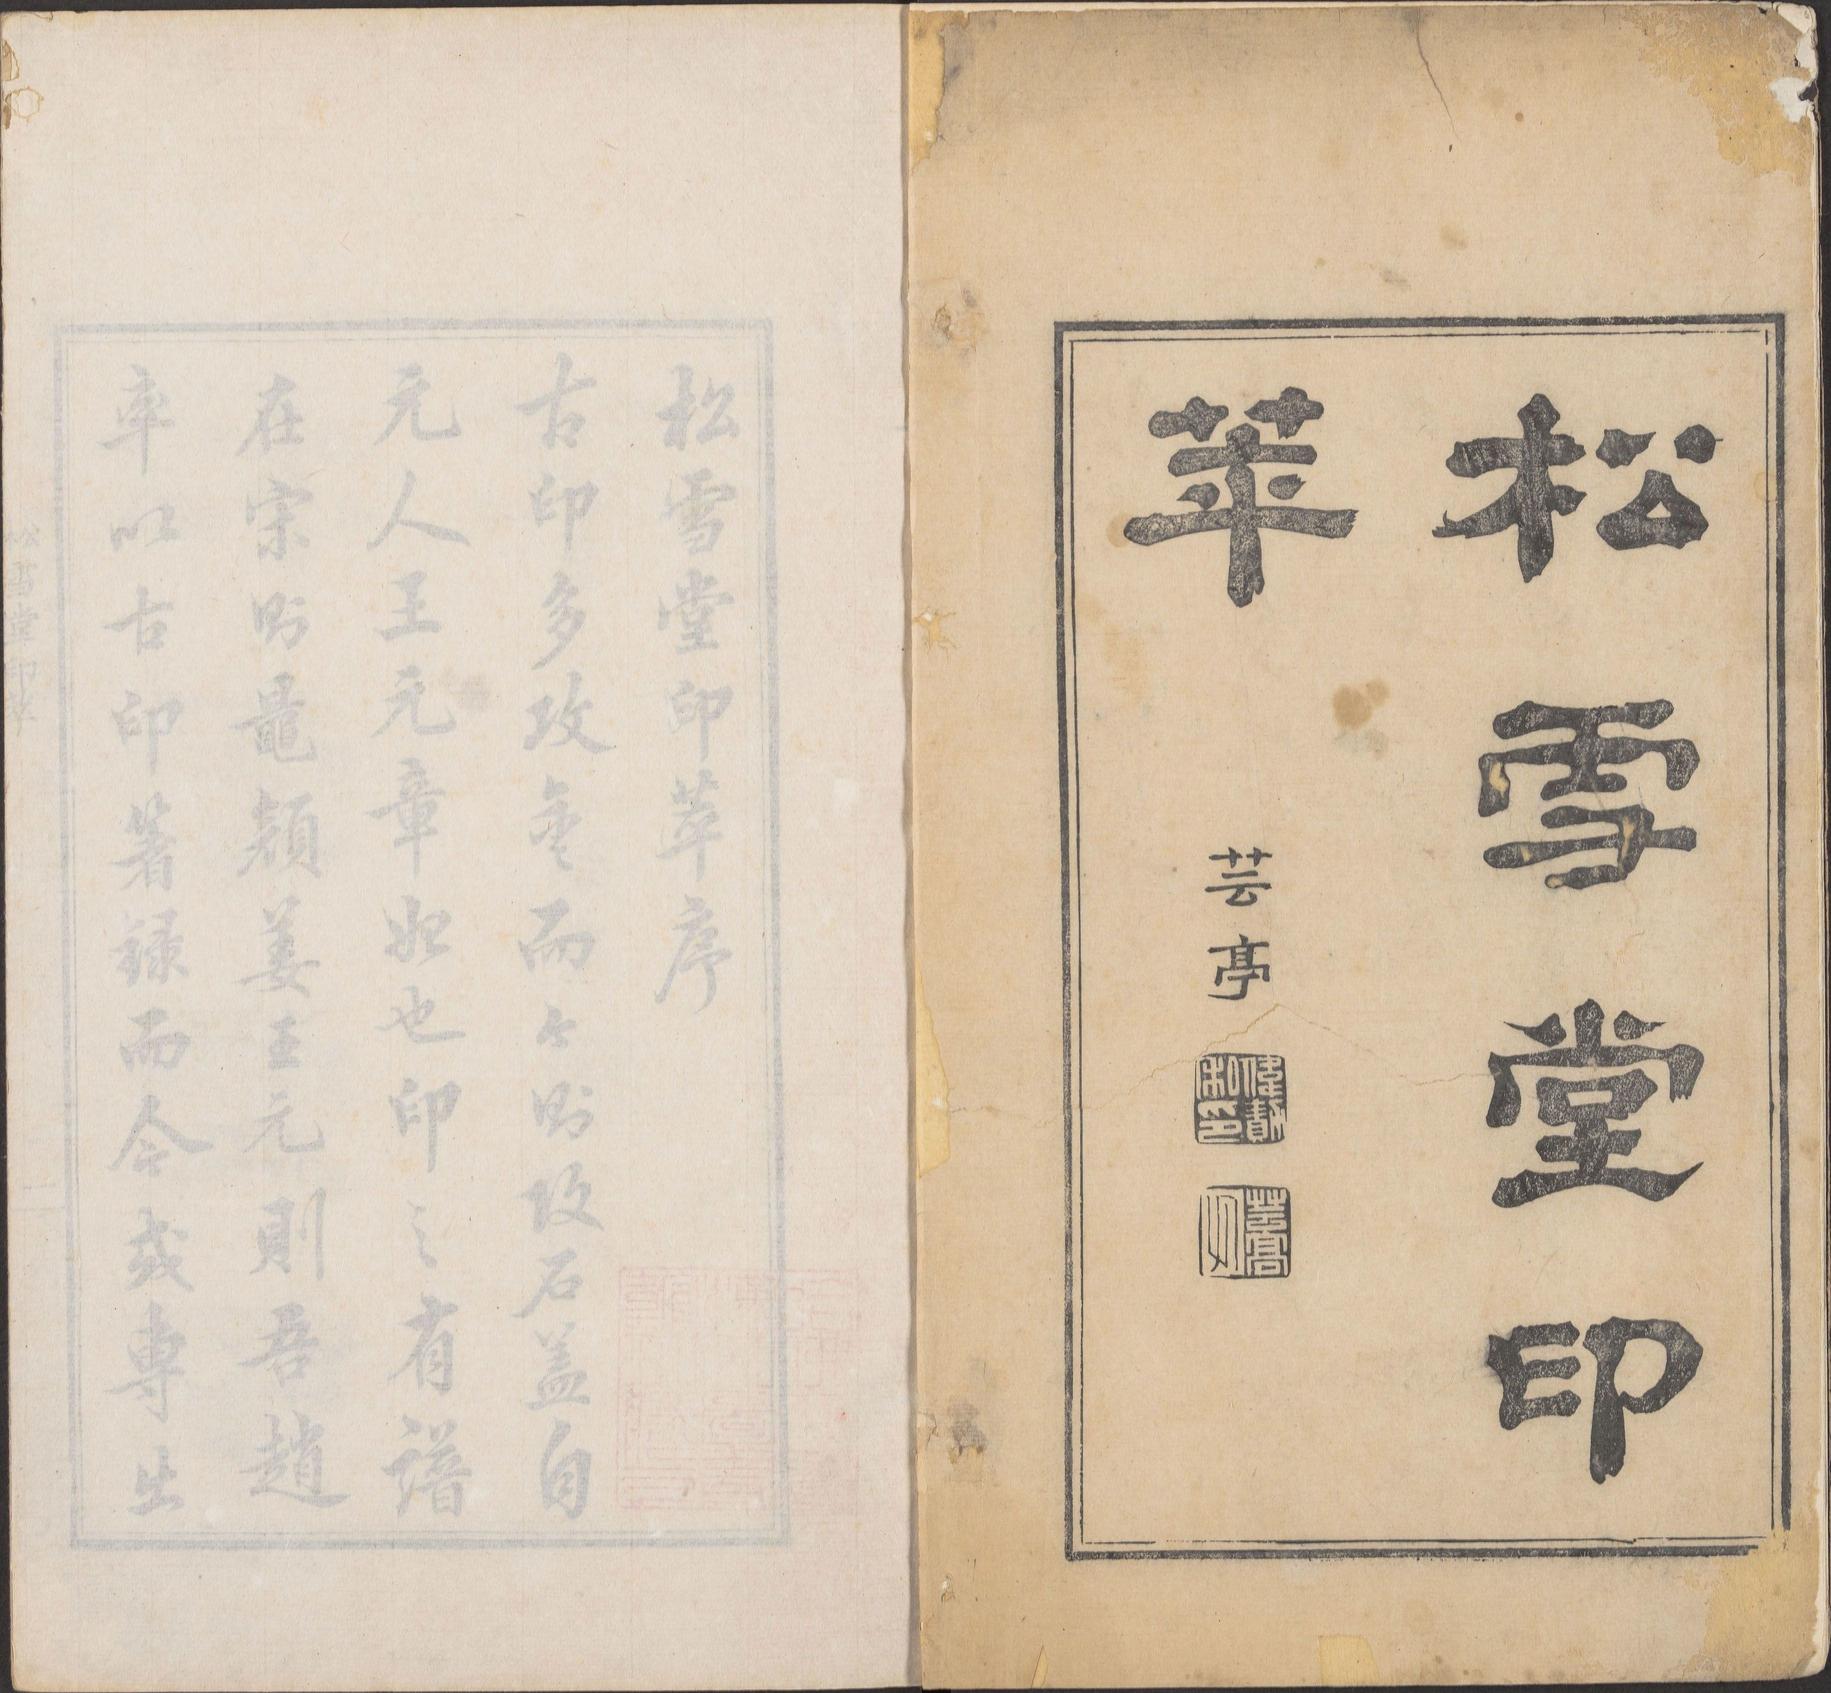 松雪堂印
萃
芸亭
松雪堂印萃序
古印多攻金而今則攻石蓋自
元人王元章始也印之有譜
在宋則鼂顏姜王元則吾趙
率以古印著錄而今或專出
松雪堂印萃